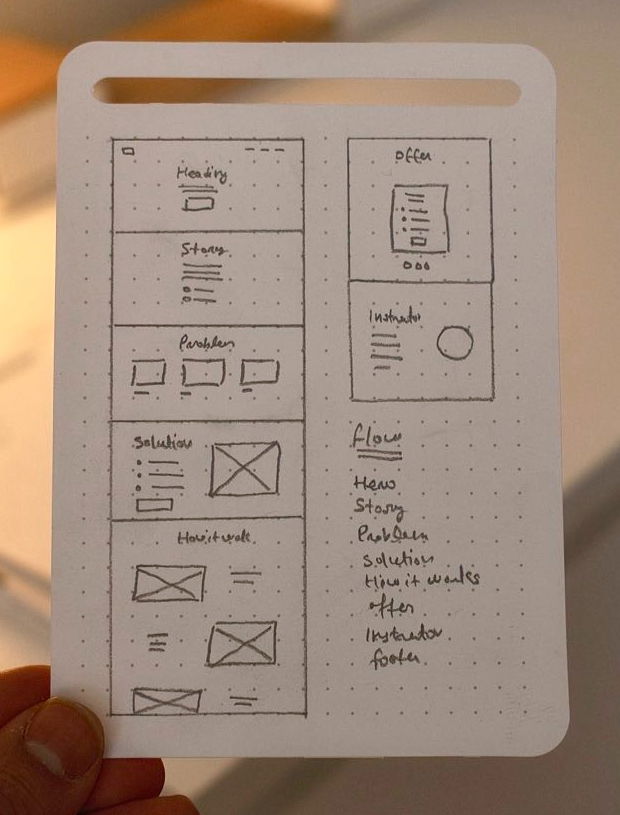 Heading
Story
Problem
Solution
How it work
Offer
Instructor
flow
Hero
Story
Problem
Solution
How it works
offer
Instructor
footer